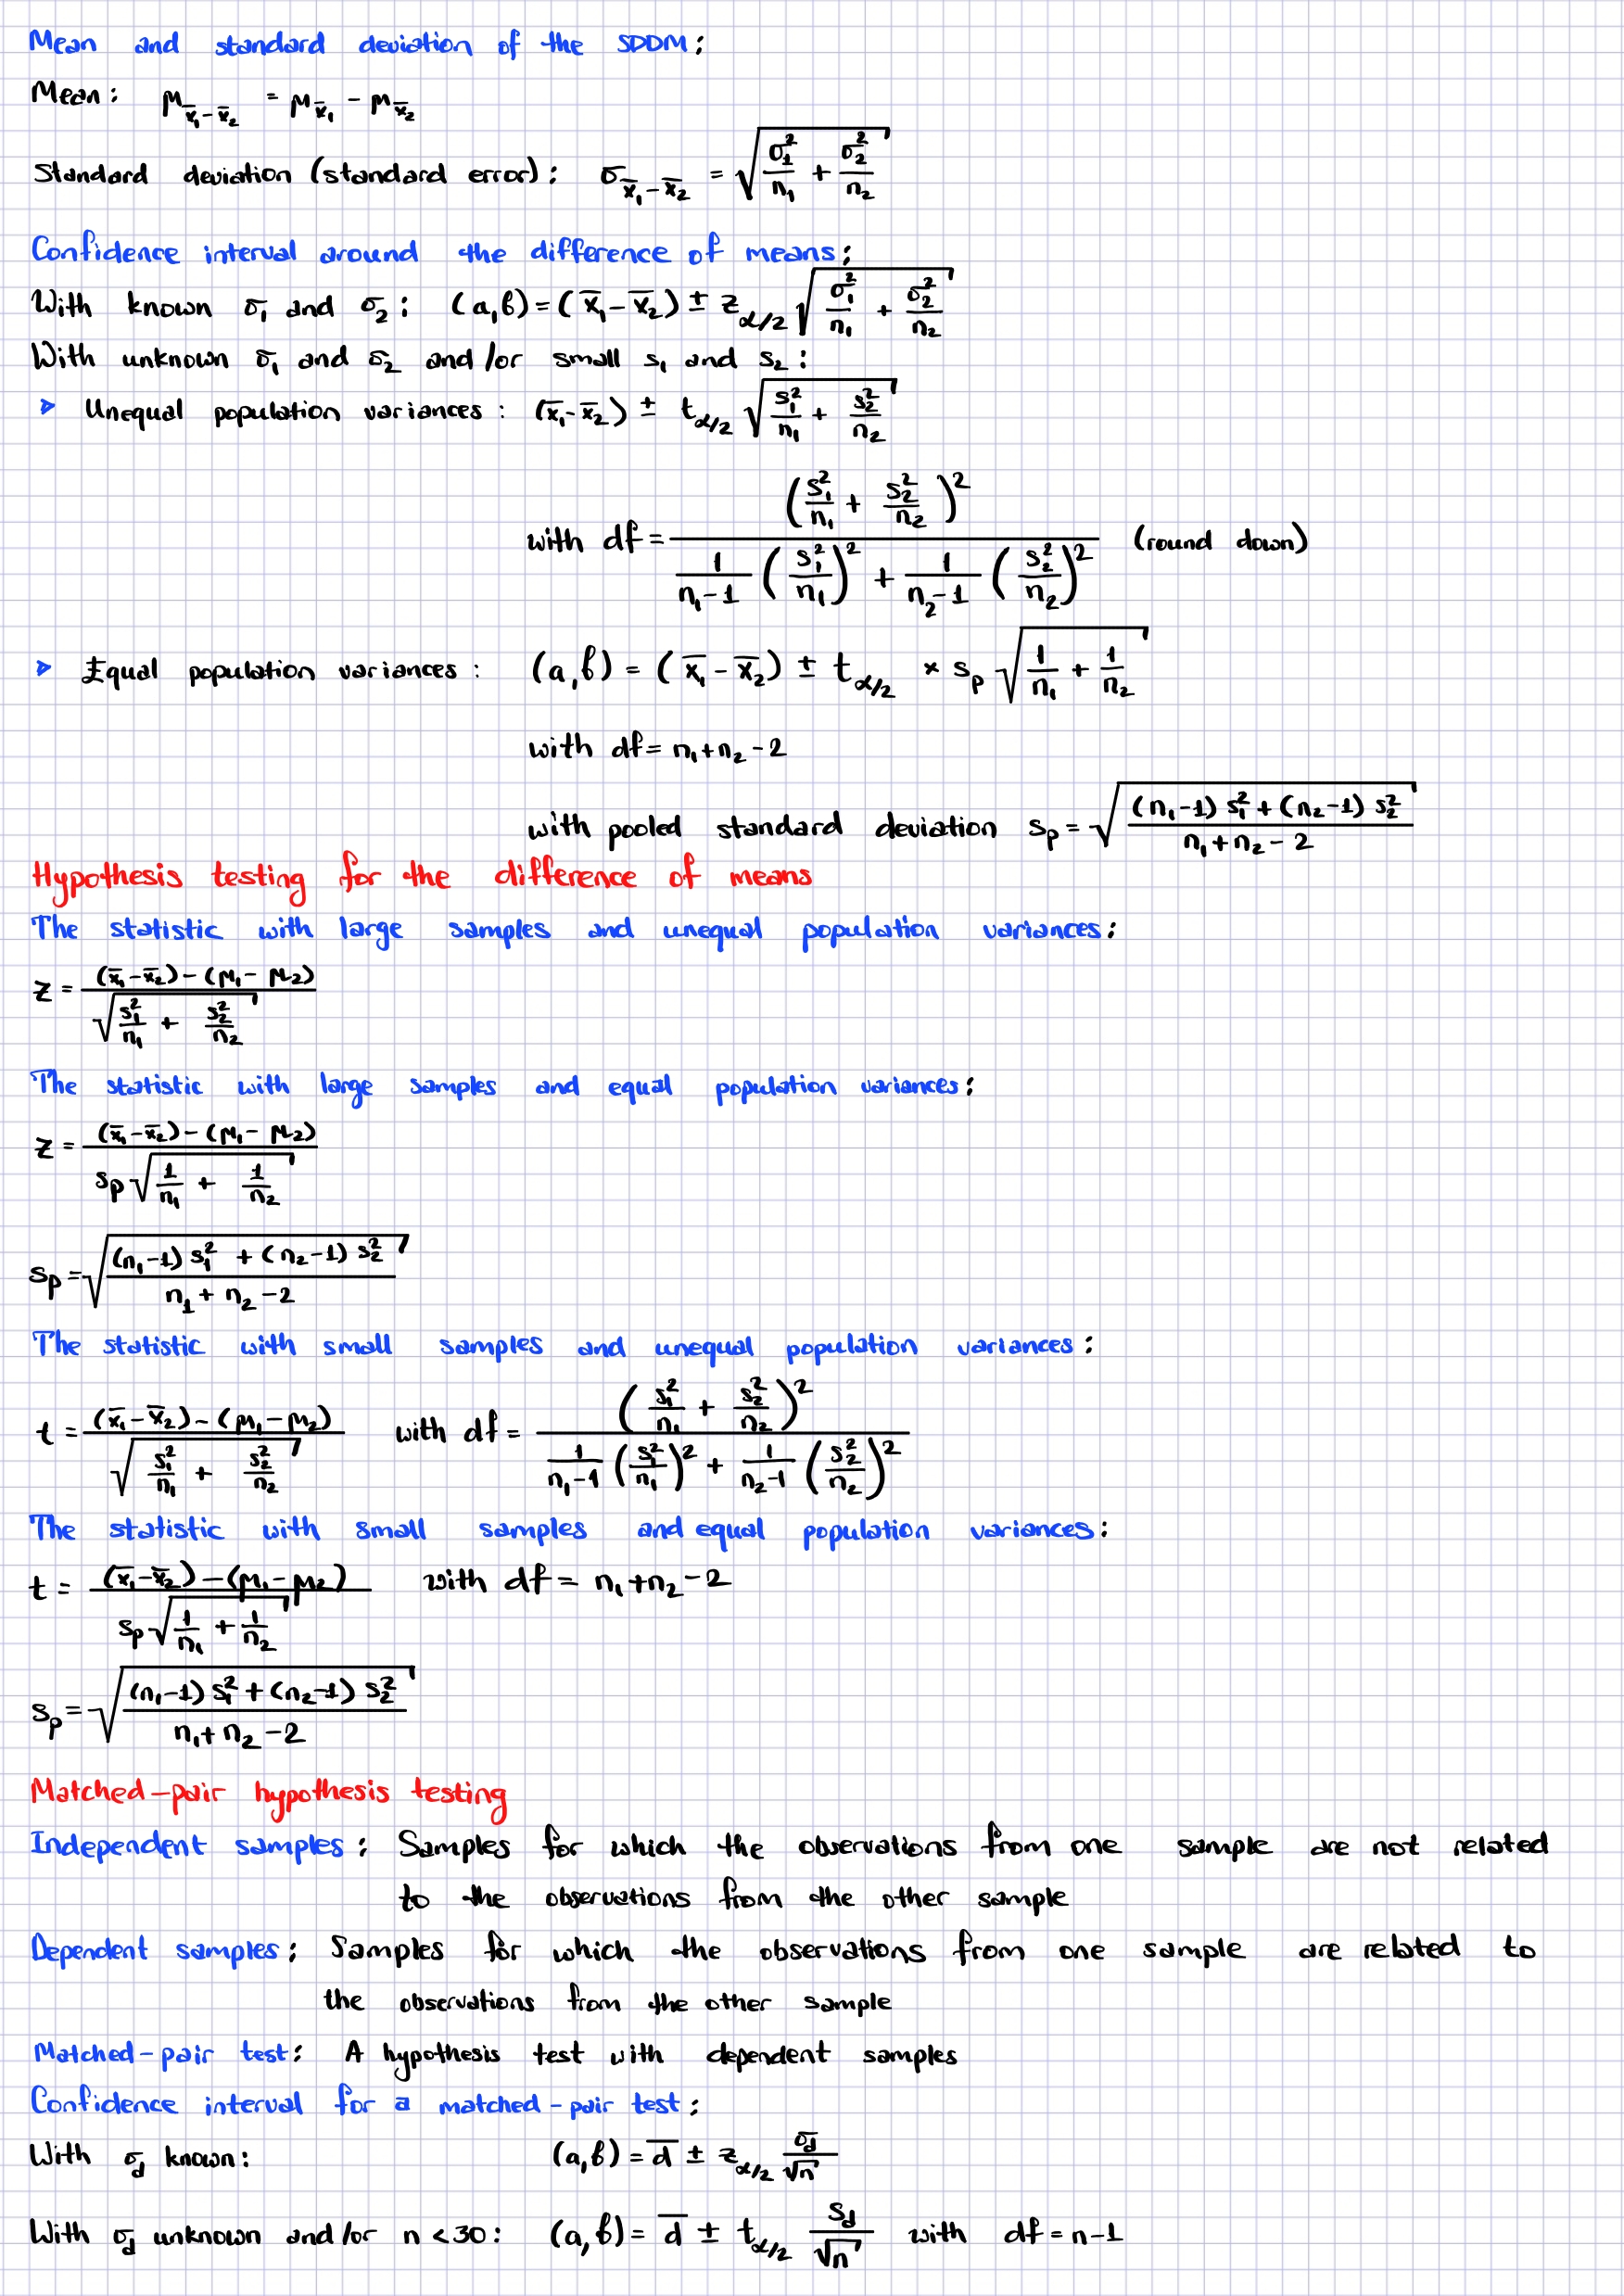 Mean and standard deviation of the SDDM:
Mean: μ_{x̄₁-x̄₂} = μ_{x̄₁} - μ_{x̄₂}
Standard deviation (standard error): σ_{x̄₁-x̄₂} = √(σ₁²/n₁ + σ₂²/n₂)
Confidence interval around the difference of means:
With known σ₁ and σ₂: (a,b) = (x̄₁ - x̄₂) ± z_{α/2} √(σ₁²/n₁ + σ₂²/n₂)
With unknown σ₁ and σ₂ and/or small s₁ and s₂:
▹ Unequal population variances: (x̄₁-x̄₂) ± t_{α/2} √(s₁²/n₁ + s₂²/n₂)
with df = (s₁²/n₁ + s₂²/n₂)² / (1/(n₁-1) (s₁²/n₁)² + 1/(n₂-1) (s₂²/n₂)²) (round down)
▹ Equal population variances: (a,b) = (x̄₁ - x̄₂) ± t_{α/2} × s_p √(1/n₁ + 1/n₂)
with df = n₁+n₂-2
with pooled standard deviation s_p = √(((n₁-1) s₁² + (n₂-1) s₂²) / (n₁+n₂-2))
Hypothesis testing for the difference of means
The statistic with large samples and unequal population variances:
z = ((x̄₁-x̄₂)-(μ₁-μ₂)) / √(s₁²/n₁ + s₂²/n₂)
The statistic with large samples and equal population variances:
z = ((x̄₁-x̄₂)-(μ₁-μ₂)) / (s_p √(1/n₁ + 1/n₂))
s_p = √(((n₁-1) s₁² + (n₂-1) s₂²) / (n₁+n₂-2))
The statistic with small samples and unequal population variances:
t = ((x̄₁-x̄₂)-(μ₁-μ₂)) / √(s₁²/n₁ + s₂²/n₂) with df = (s₁²/n₁ + s₂²/n₂)² / (1/(n₁-1) (s₁²/n₁)² + 1/(n₂-1) (s₂²/n₂)²)
The statistic with small samples and equal population variances:
t = ((x̄₁-x̄₂)-(μ₁-μ₂)) / (s_p √(1/n₁ + 1/n₂)) with df = n₁+n₂-2
s_p = √(((n₁-1) s₁² + (n₂-1) s₂²) / (n₁+n₂-2))
Matched-pair hypothesis testing
Independent samples: Samples for which the observations from one sample are not related
to the observations from the other sample
Dependent samples: Samples for which the observations from one sample are related to
the observations from the other sample
Matched-pair test: A hypothesis test with dependent samples
Confidence interval for a matched-pair test:
With σ_d known: (a,b) = d̄ ± z_{α/2} σ_d/√n
With σ_d unknown and/or n < 30: (a,b) = d̄ ± t_{α/2} s_d/√n with df = n-1